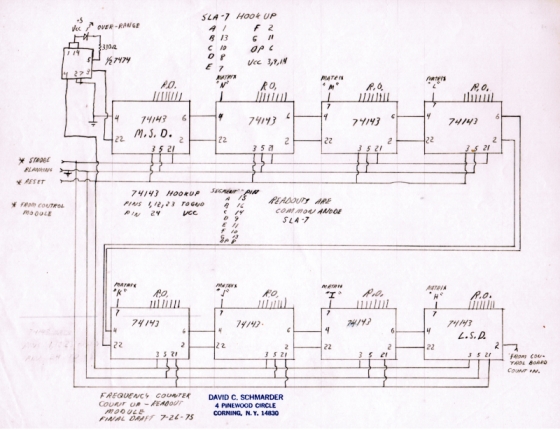 SLA-7 HOOKUP
A 1 F 2
B 13 G 11
C 10 DP 6
D 8 VCC 3,9,14
E 7
+5
VCC OVER-RANGE
330Ω
1 14
½ 7474
4 2 7 3
R.O.
74143
M.S.D.
4
22
3 5 21
MATRIX
"N"
R.O.
7
4 74143 6
22 2
3 5 21
MATRIX
"M"
R.O.
7
4 74143 6
22 2
3 5 21
MATRIX
"L"
R.O.
7
4 74143 6
22 2
3 5 21
* STROBE
BLANKING
* RESET
* FROM CONTROL
MODULE
74143 HOOKUP
PINS 1,12,23 TO GND
PIN 24 VCC
SEGMENT - PIN
A 15
B 16
C 14
D 9
E 11
F 10
G 13
DP 8
READOUTS ARE
COMMON ANODE
SLA-7
MATRIX
"K"
R.O.
7
4 74143 6
22 2
3 5 21
MATRIX
"J"
R.O.
7
4 74143 6
22 2
3 5 21
MATRIX
"I"
R.O.
7
4 74143 6
22 2
3 5 21
MATRIX
"H"
R.O.
7
4 74143 6
L.S.D.
22 2
3 5 21
FROM CON-
TROL BOARD
COUNT IN.
FREQUENCY COUNTER
COUNT UP - READOUT
MODULE
FINAL DRAFT 7-26-75
DAVID C. SCHMARDER
4 PINEWOOD CIRCLE
CORNING, N.Y. 14830